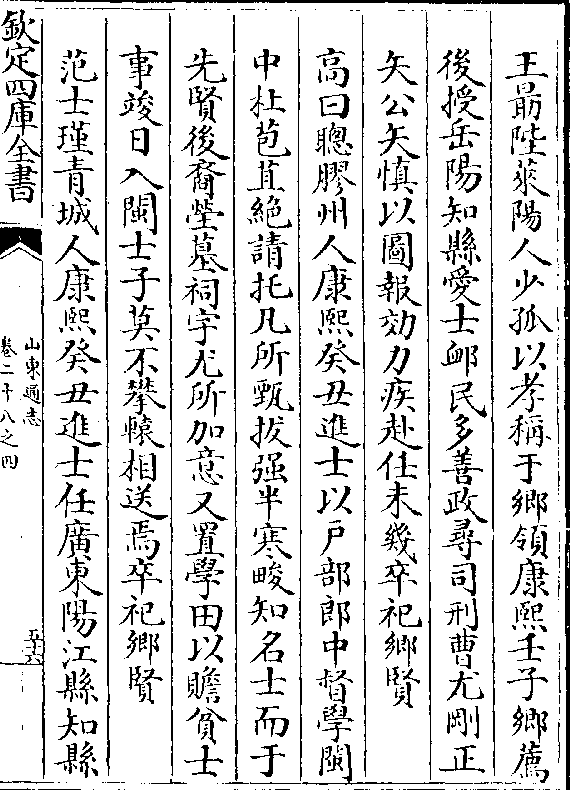 王勗陛萊陽人少孤以孝稱于鄉領康熙壬子鄉薦
後授岳陽知縣愛士衈民多善政尋司刑曹尤剛正
矢公矢慎以圖報効力疾赴任未幾卒祀鄉賢
高曰聰膠州人康熙癸丑進士以戸部郎中督學閩
中杜苞苴絶請托凡所甄拔强半寒畯知名士而于
先賢後裔塋墓祠宇尤所加意又置學田以贍貧士
事竣日入閩士子莫不攀轅相送焉卒祀鄉賢
范士瑾青城人康熙癸丑進士任廣東陽江縣知縣
欽定四庫全書
山東通志
卷二十八之四
五十六